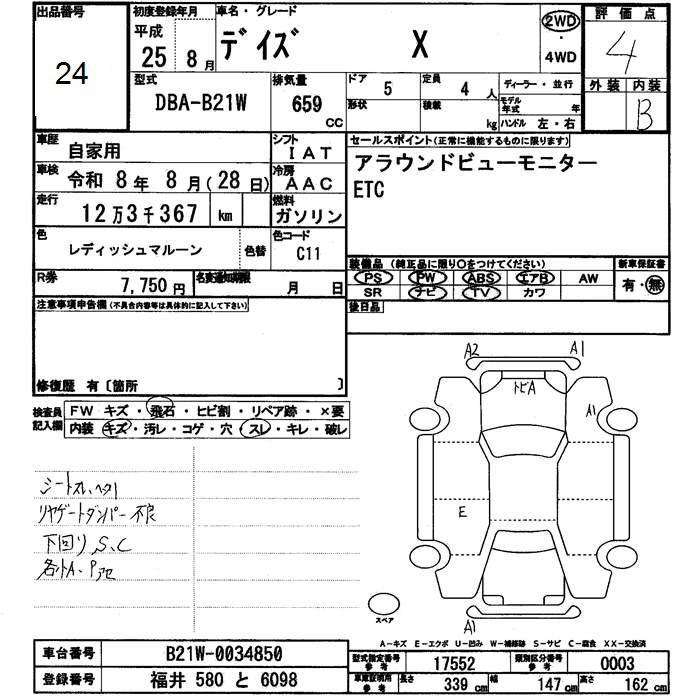 出品番号
24
初度登録年月
平成
25年 8月
車名・グレード
デイズ X
2WD
・
4WD
評価点
4
外装 内装
B
型式
DBA-B21W
排気量
659
CC
ドア 5
定員 4 人
形状
積載 kg
ディーラー・並行
モデル年式 年
ハンドル 左・右
車歴
自家用
シフト
IAT
車検
令和 8年 8月(28日)
冷房
AAC
走行
12万3千367 km
燃料
ガソリン
色
レディッシュマルーン
色替
色コード
C11
R券
7,750円
名変通知期限
月 日
セールスポイント(正常に機能するものに限ります)
アラウンドビューモニター
ETC
装備品 (純正品に限り○をつけてください)
PS PW ABS エアB AW
SR ナビ TV カワ
新車保証書
有・無
後日品
注意事項申告欄(不具合内容等は具体的に記入して下さい)
修復歴 有〔箇所 〕
検査員記入欄
FW キズ・飛石・ヒビ割・リペア跡・×要
内装 キズ・汚レ・コゲ・穴・スレ・キレ・破レ
シートスレ、ヘタリ
リヤゲートダンパー不良
下回りS、C
各小A、Pアセ
A2
A1
トビA
A1
E
A1
スペア
A-キズ E-エクボ U-凹み W-補修跡 S-サビ C-腐食 XX-交換済
車台番号
B21W-0034850
登録番号
福井 580 と 6098
型式指定番号
参考
17552
類別区分番号
参考
0003
車庫証明用
参考
長さ 339 cm
幅 147 cm
高さ 162 cm